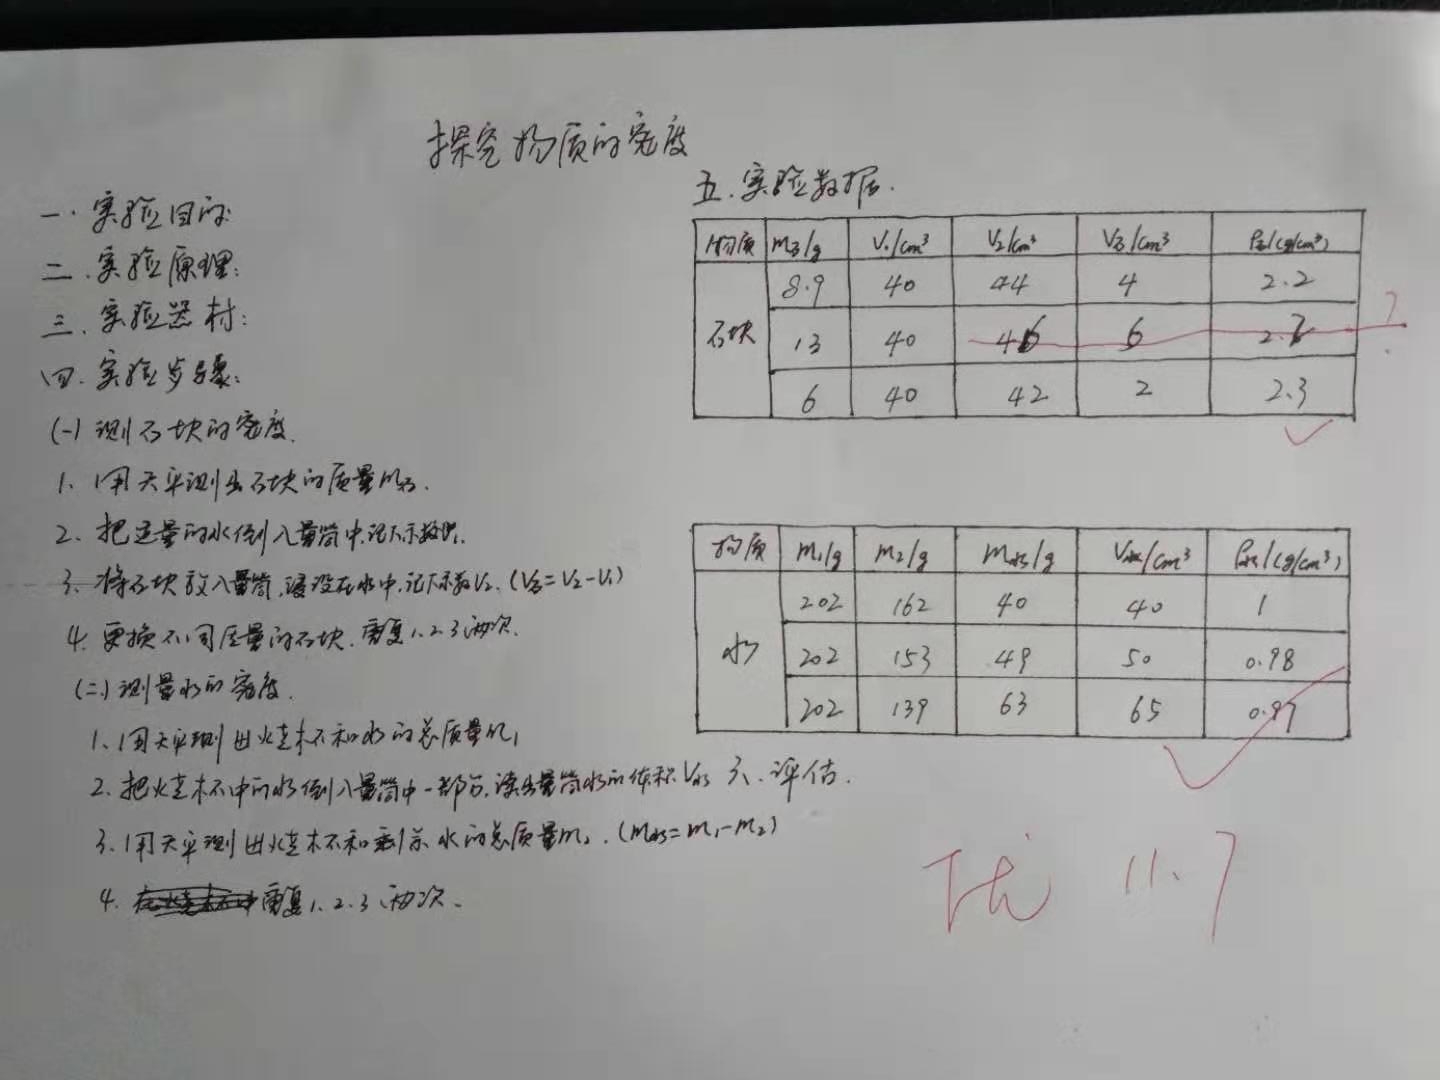 探究物质的密度
一.实验目的:
二.实验原理:
三.实验器材:
四.实验步骤:
(一)测石块的密度.
1、用天平测出石块的质量m石.
2.把适量的水倒入量筒中,记下示数V1.
3.将石块放入量筒,浸没在水中,记下示数V2.(V石=V2-V1)
4.更换不同质量的石块.重复1.2.3两次.
(二)测量水的密度.
1、用天平测出烧杯和水的总质量m1
2.把烧杯中的水倒入量筒中一部分,读出量筒水的体积V水
3.用天平测出烧杯和剩余水的总质量m2.(m水=m1-m2)
4.重复1.2.3两次.
五.实验数据.
物质 m石/g V1/cm³ V2/cm³ V石/cm³ ρ石(g/cm³)
石块
8.9 40 44 4 2.2
13 40 46 6 2.2
6 40 42 2 2.3
?
物质 m1/g m2/g m水/g V水/cm³ ρ水/(g/cm³)
水
202 162 40 40 1
202 153 49 50 0.98
202 139 63 65 0.97
六.评估.
优 11.7